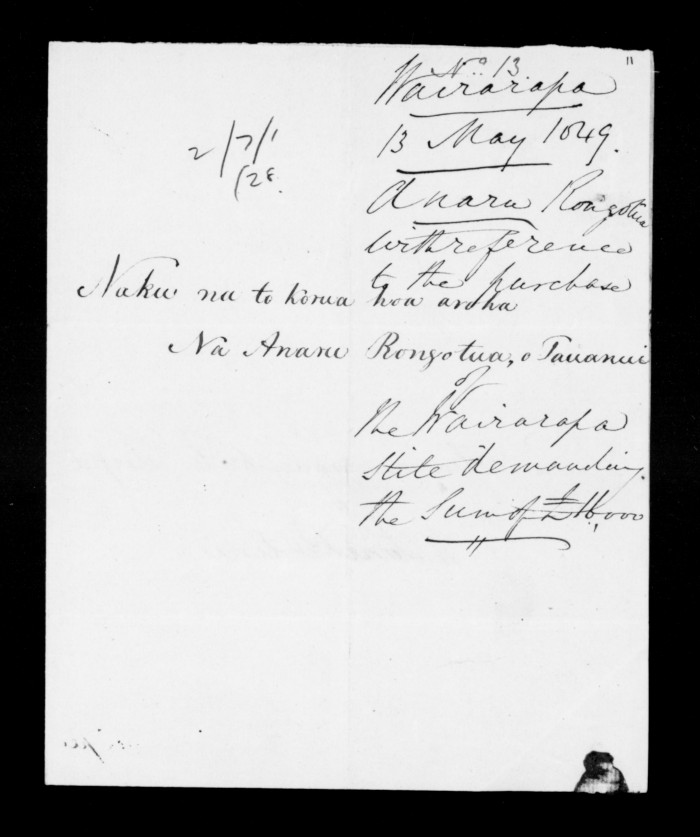 11
No. 13
Wairarapa
13 May 1849.
2/7/1
/28.
Anaru Rongotua
with reference
to the purchase
Naku na to korua hoa aroha
Na Anaru Rongotua, o Tauanui
of
the Wairarapa
demanding
the Sum of £16,000